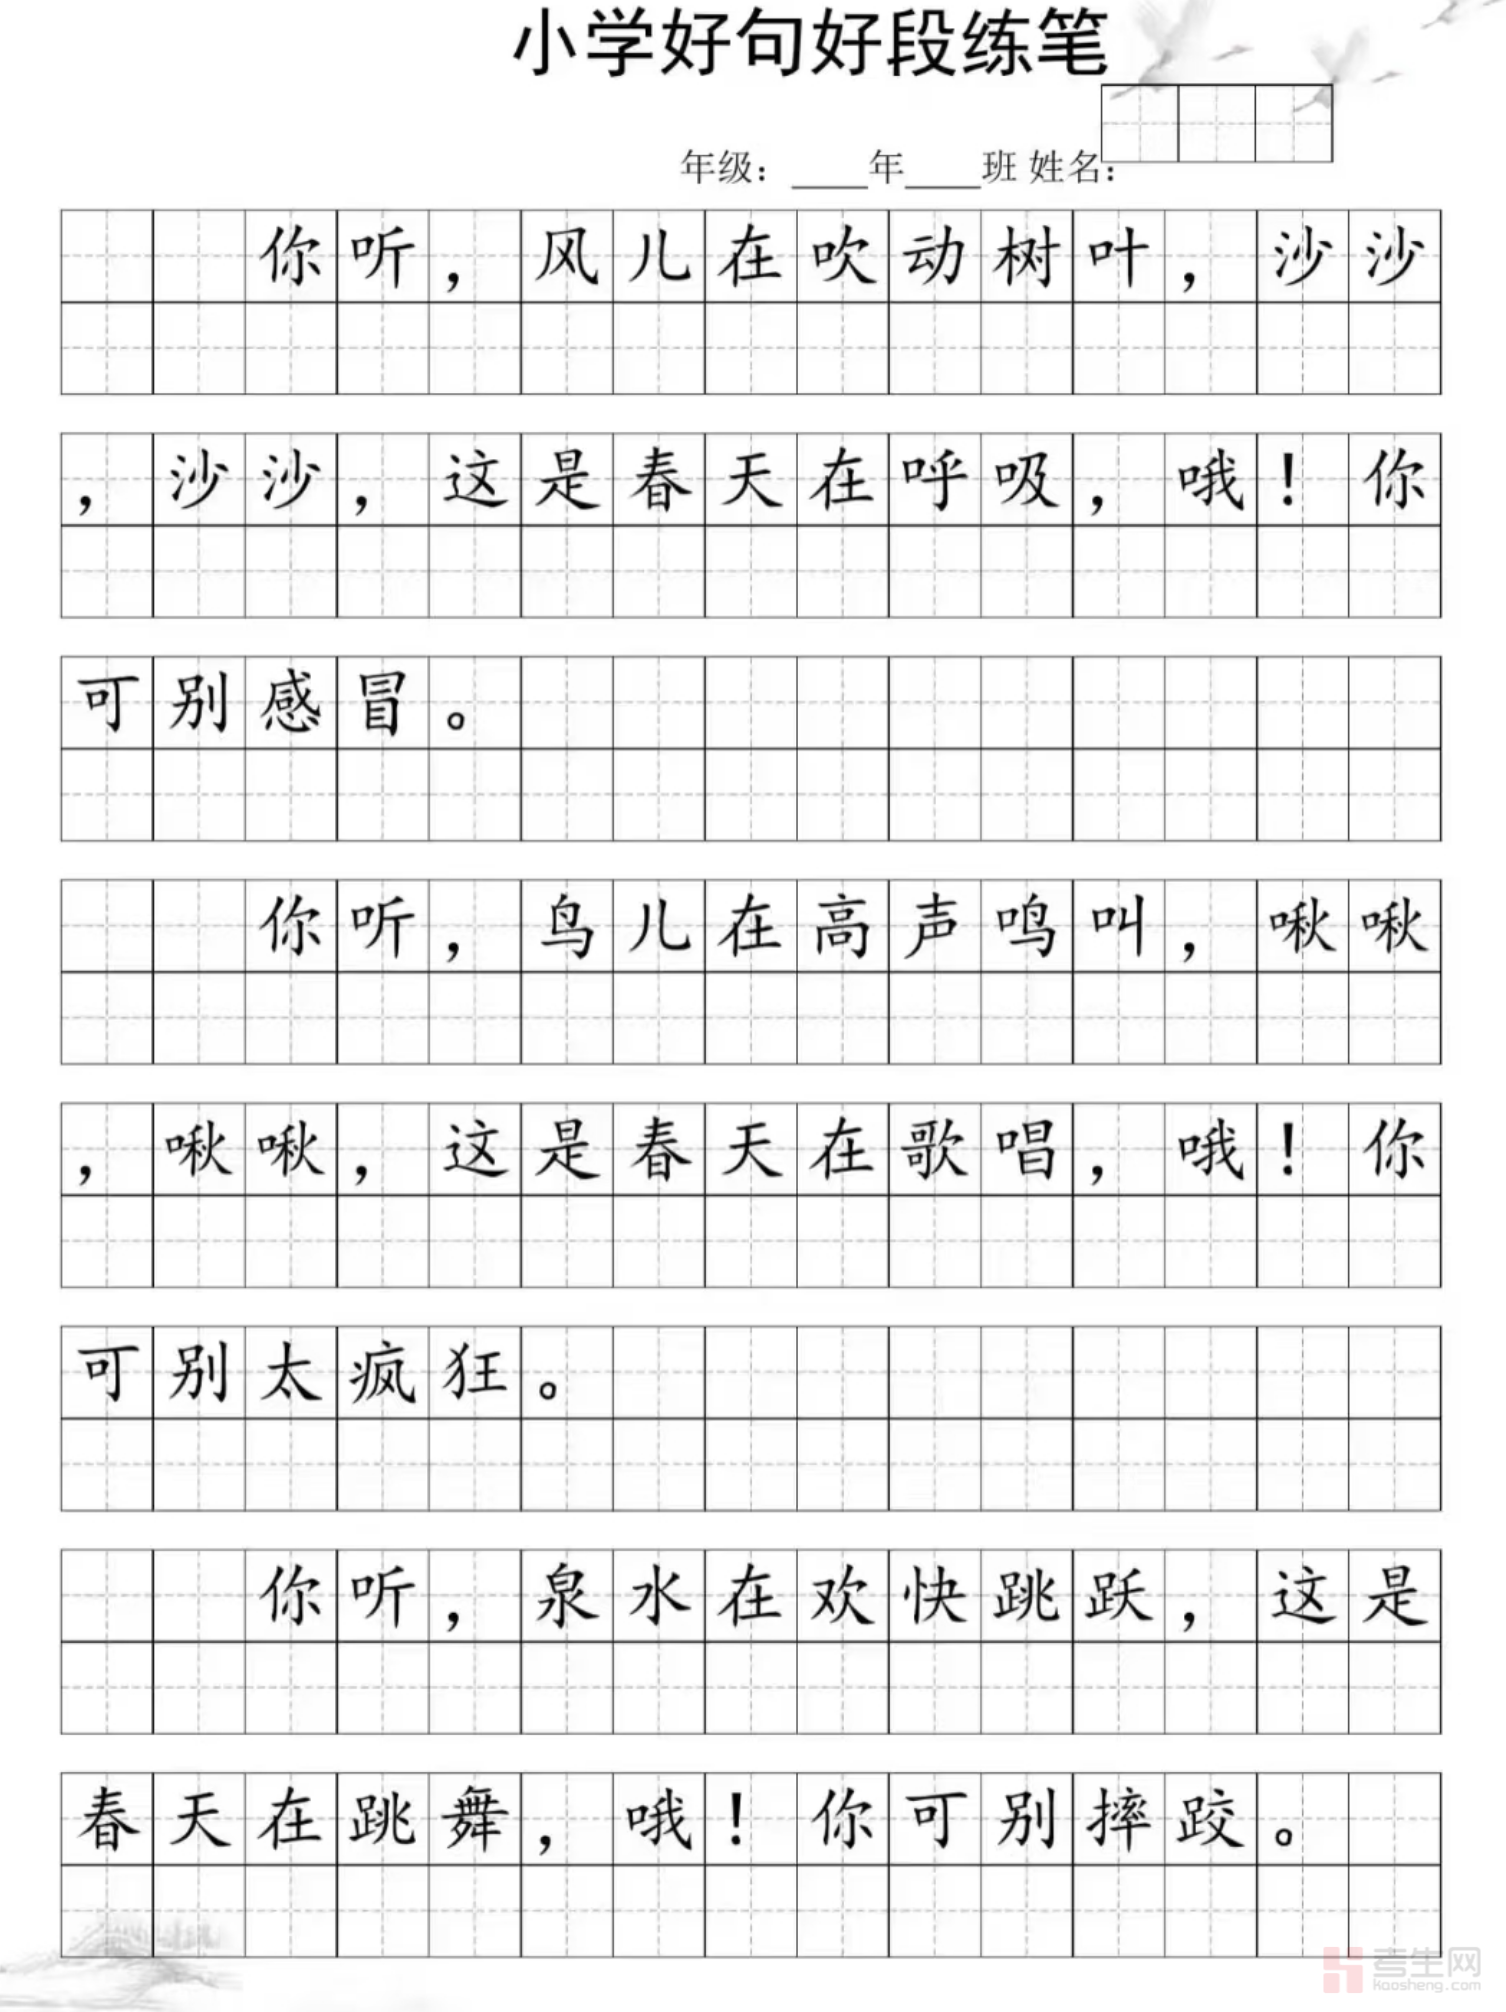 小学好句好段练笔
年级：____年____班 姓名：
你听，风儿在吹动树叶，沙沙
，沙沙，这是春天在呼吸，哦！你
可别感冒。
你听，鸟儿在高声鸣叫，啾啾
，啾啾，这是春天在歌唱，哦！你
可别太疯狂。
你听，泉水在欢快跳跃，这是
春天在跳舞，哦！你可别摔跤。
考生网
kaosheng.com